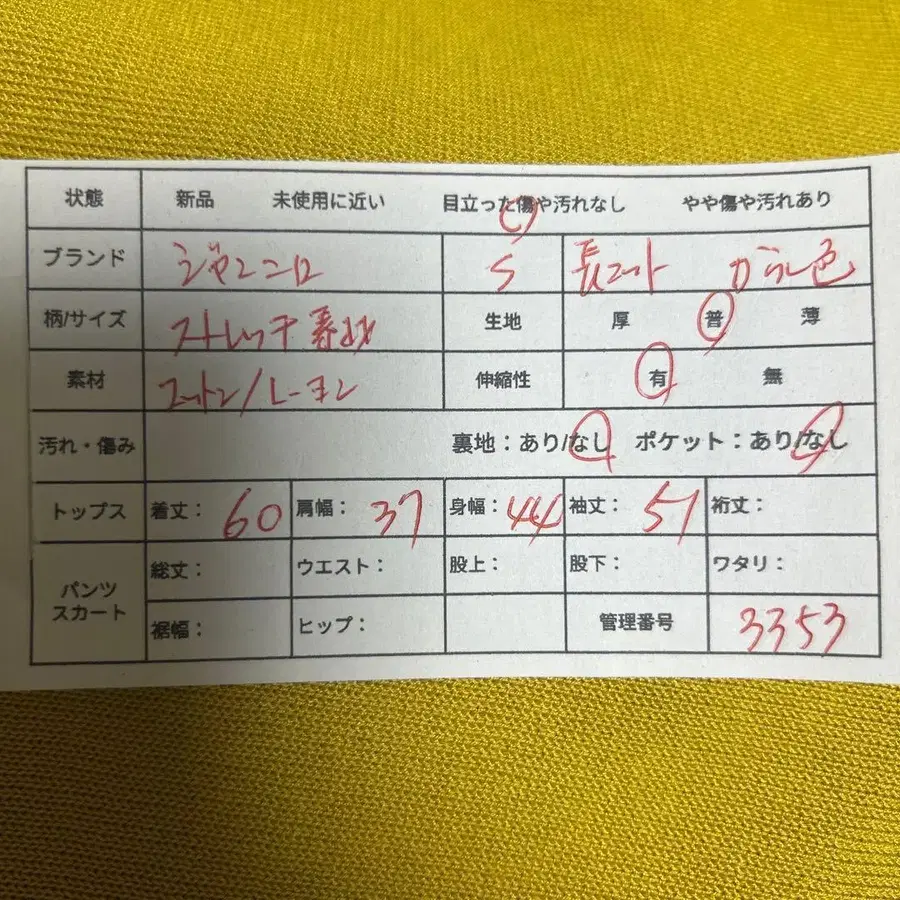 状態 新品 未使用に近い 目立った傷や汚れなし やや傷や汚れあり
ブランド S 長ニット カラシ色
柄/サイズ ストレッチ素材 生地 厚 普 薄
素材 コットン/レーヨン 伸縮性 有 無
汚れ・傷み 裏地：あり/なし ポケット：あり/なし
トップス 着丈：60 肩幅：37 身幅：44 袖丈：51 裄丈：
パンツ スカート 総丈： ウエスト： 股上： 股下： ワタリ：
裾幅： ヒップ： 管理番号 3353